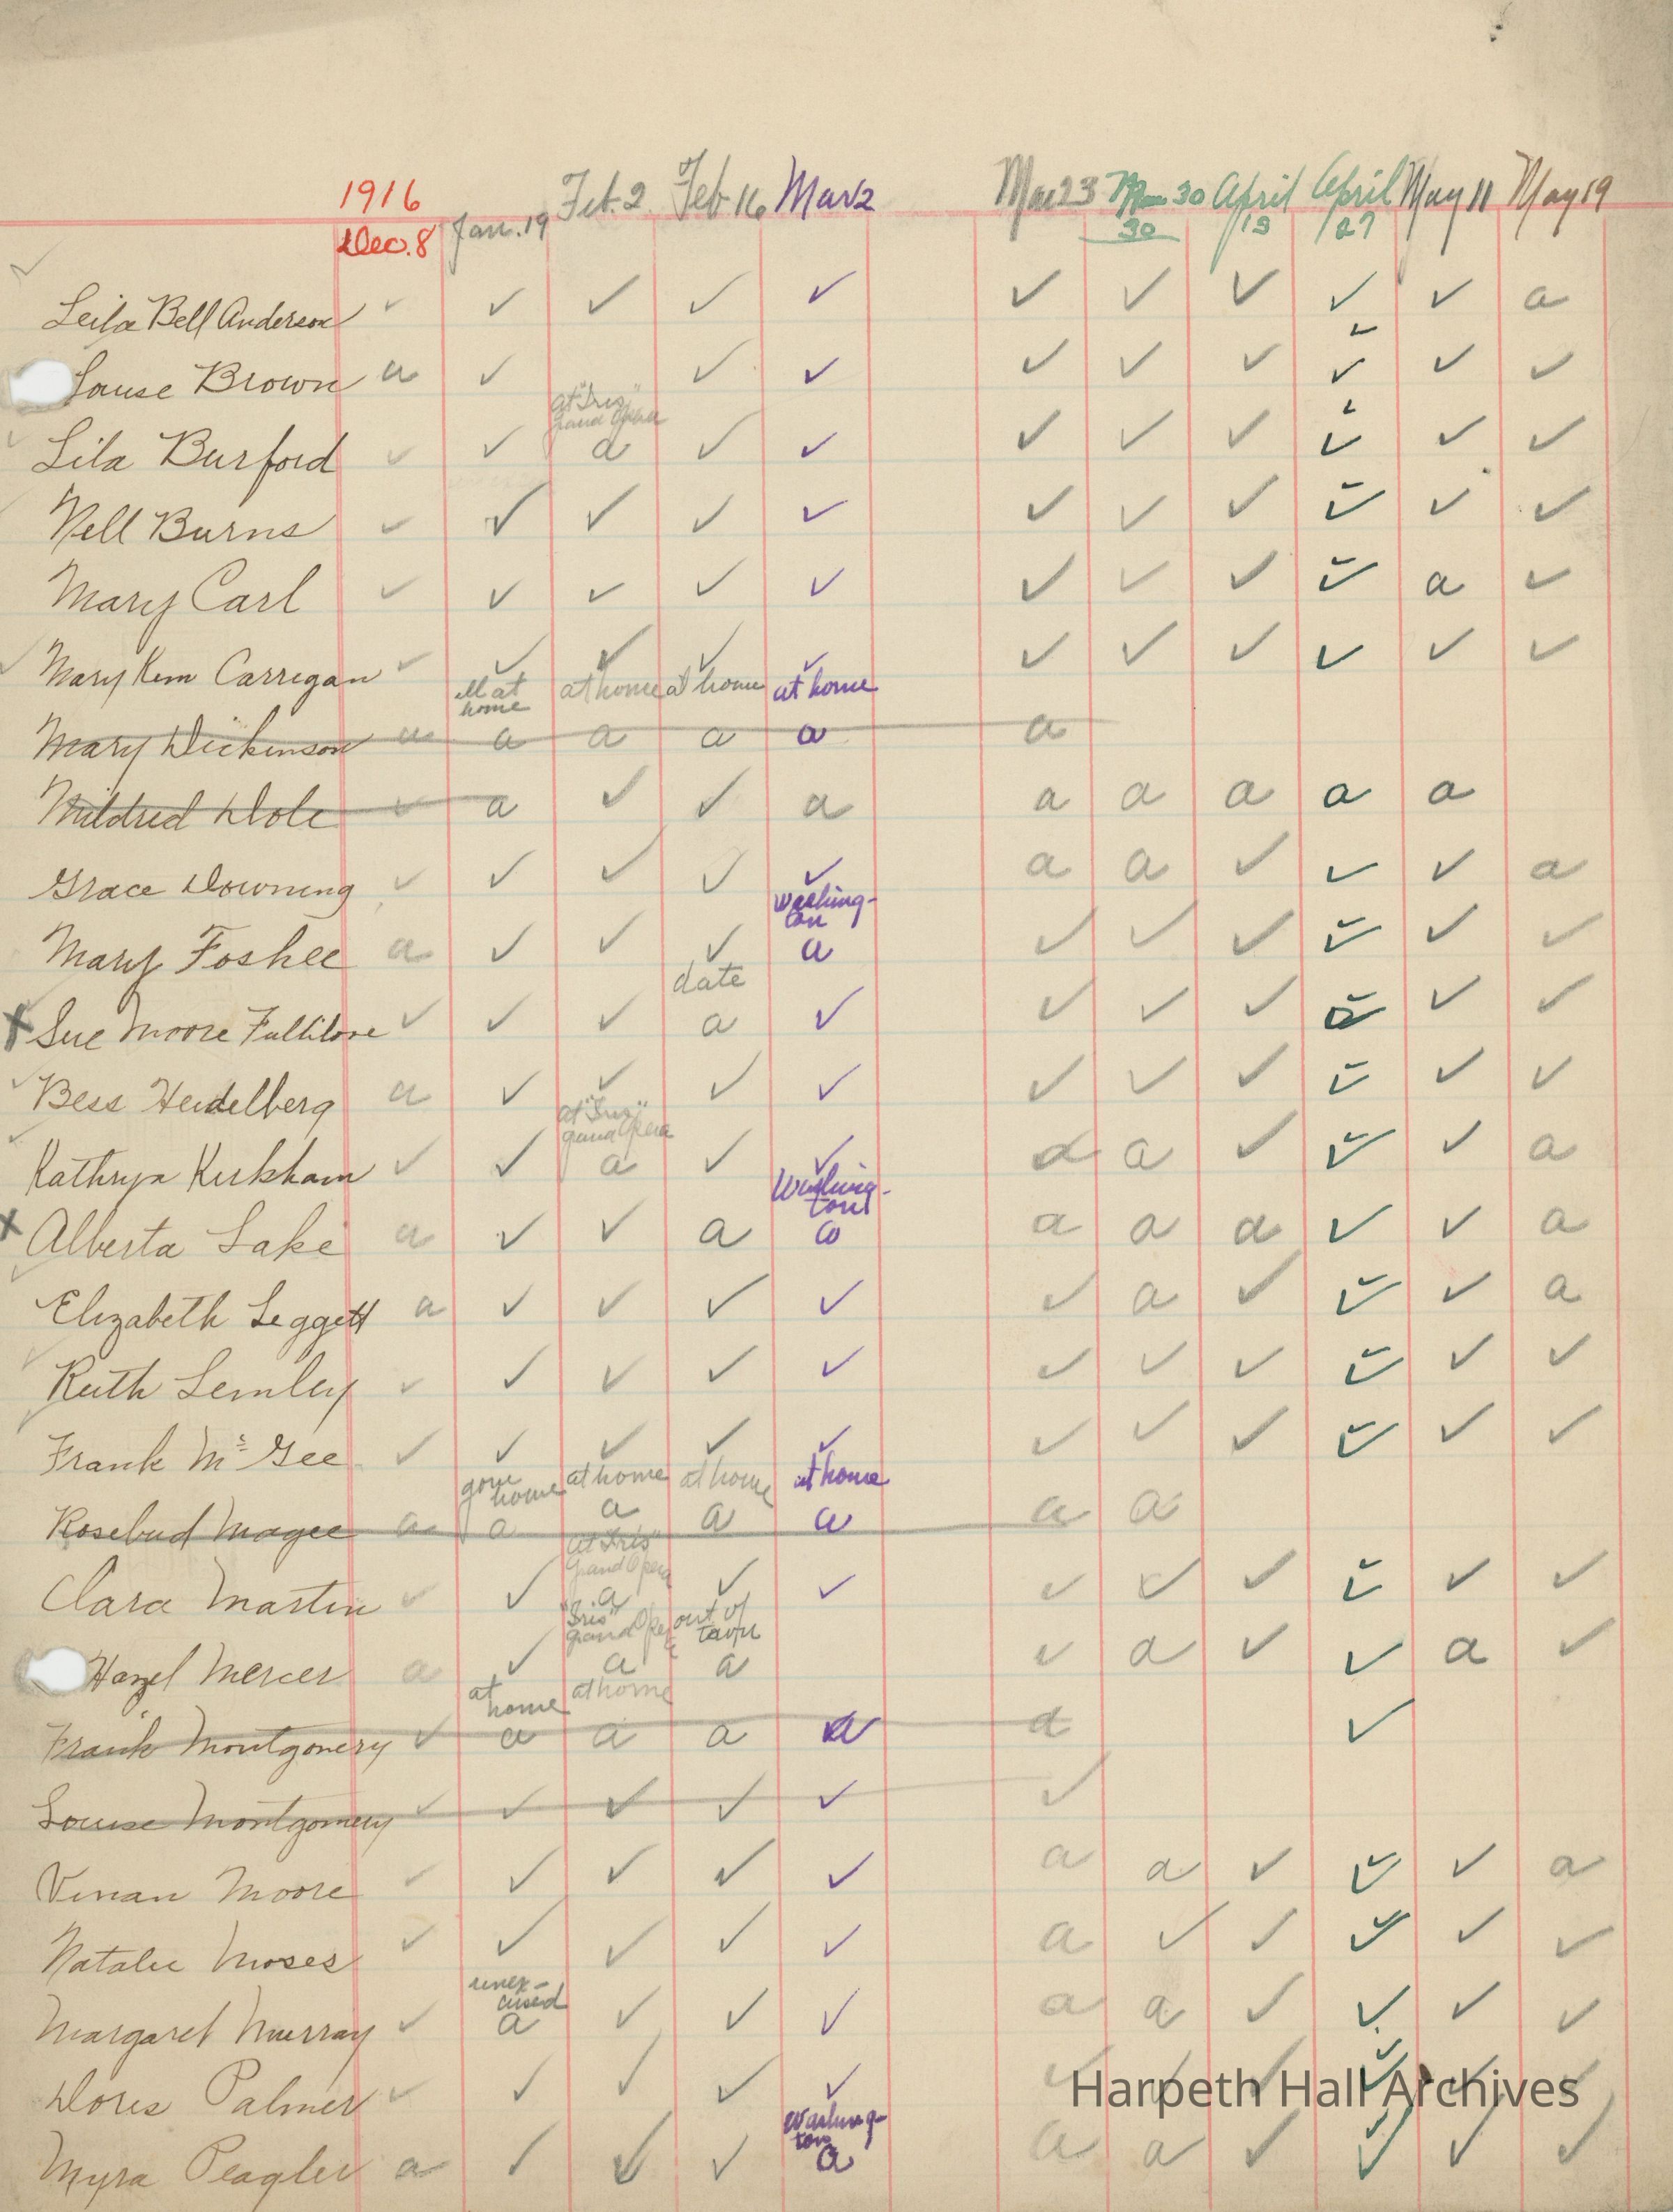 1916
Dec. 8 Jan. 19 Feb. 2 Feb 16 Mar 2 Mar 23 30 April 13 April 27 May 11 May 19
30
✓
Leila Bell Anderson ✓ ✓ ✓ ✓ ✓ ✓ ✓ ✓ ✓ ✓ a
Louise Brown a ✓ ✓ ✓ ✓ ✓ ✓ ✓ ✓ ✓
at "Iris" grand Opera
Lila Burford ✓ ✓ a ✓ ✓ ✓ ✓ ✓ ✓ ✓ ✓
Nell Burns ✓ ✓ ✓ ✓ ✓ ✓ ✓ ✓ ✓ ✓ ✓
Mary Carl ✓ ✓ ✓ ✓ ✓ ✓ ✓ ✓ ✓ a ✓
Mary Kem Carrigan ✓ ✓ ✓ ✓ ✓ ✓ ✓ ✓ ✓ ✓ ✓
ill at home at home at home at home
Mary Dickinson a a a a a a
Mildred Dole ✓ a ✓ ✓ a a a a a a
Grace Downing ✓ ✓ ✓ ✓ ✓ a a ✓ ✓ ✓ a
washing-ton
Mary Foshee a ✓ ✓ ✓ a ✓ ✓ ✓ ✓ ✓ ✓
date
x Sue Moore Fullilove ✓ ✓ ✓ a ✓ ✓ ✓ ✓ ✓ ✓
Bess Heidelberg a ✓ ✓ ✓ ✓ ✓ ✓ ✓ ✓ ✓ ✓
at "Iris" grand Opera
Kathryn Kirkham ✓ ✓ a ✓ ✓ a a ✓ ✓ ✓ a
Washing-ton
x Alberta Lake a ✓ ✓ a a a a a ✓ ✓ a
Elizabeth Leggett a ✓ ✓ ✓ ✓ ✓ a ✓ ✓ ✓ a
Ruth Lemley ✓ ✓ ✓ ✓ ✓ ✓ ✓ ✓ ✓ ✓ ✓
Frank McGee ✓ ✓ ✓ ✓ ✓ ✓ ✓ ✓ ✓ ✓ ✓
gone home at home at home at home
Rosebud Magee a a a a a a a
at "Iris" Grand Opera
Clara Martin ✓ ✓ a ✓ ✓ ✓ ✓ ✓ ✓ ✓ ✓
"Iris" grand Opera out of town
Hazel Mercer a ✓ a a ✓ a ✓ ✓ a ✓
at home at home
Frank Montgomery ✓ a a a a a ✓
Louise Montgomery ✓ ✓ ✓ ✓ ✓ ✓
Vivian Moore ✓ ✓ ✓ ✓ ✓ a a ✓ ✓ ✓ a
Natalie Moses ✓ ✓ ✓ ✓ ✓ a ✓ ✓ ✓ ✓ ✓
unex-cused
Margaret Murray ✓ a ✓ ✓ ✓ a a ✓ ✓ ✓ ✓
Dores Palmer ✓ ✓ ✓ ✓ ✓ ✓ ✓ ✓ ✓ ✓ ✓
Washing-ton
Myra Peagler a ✓ ✓ ✓ a a a ✓ ✓ ✓ ✓
Harpeth Hall Archives